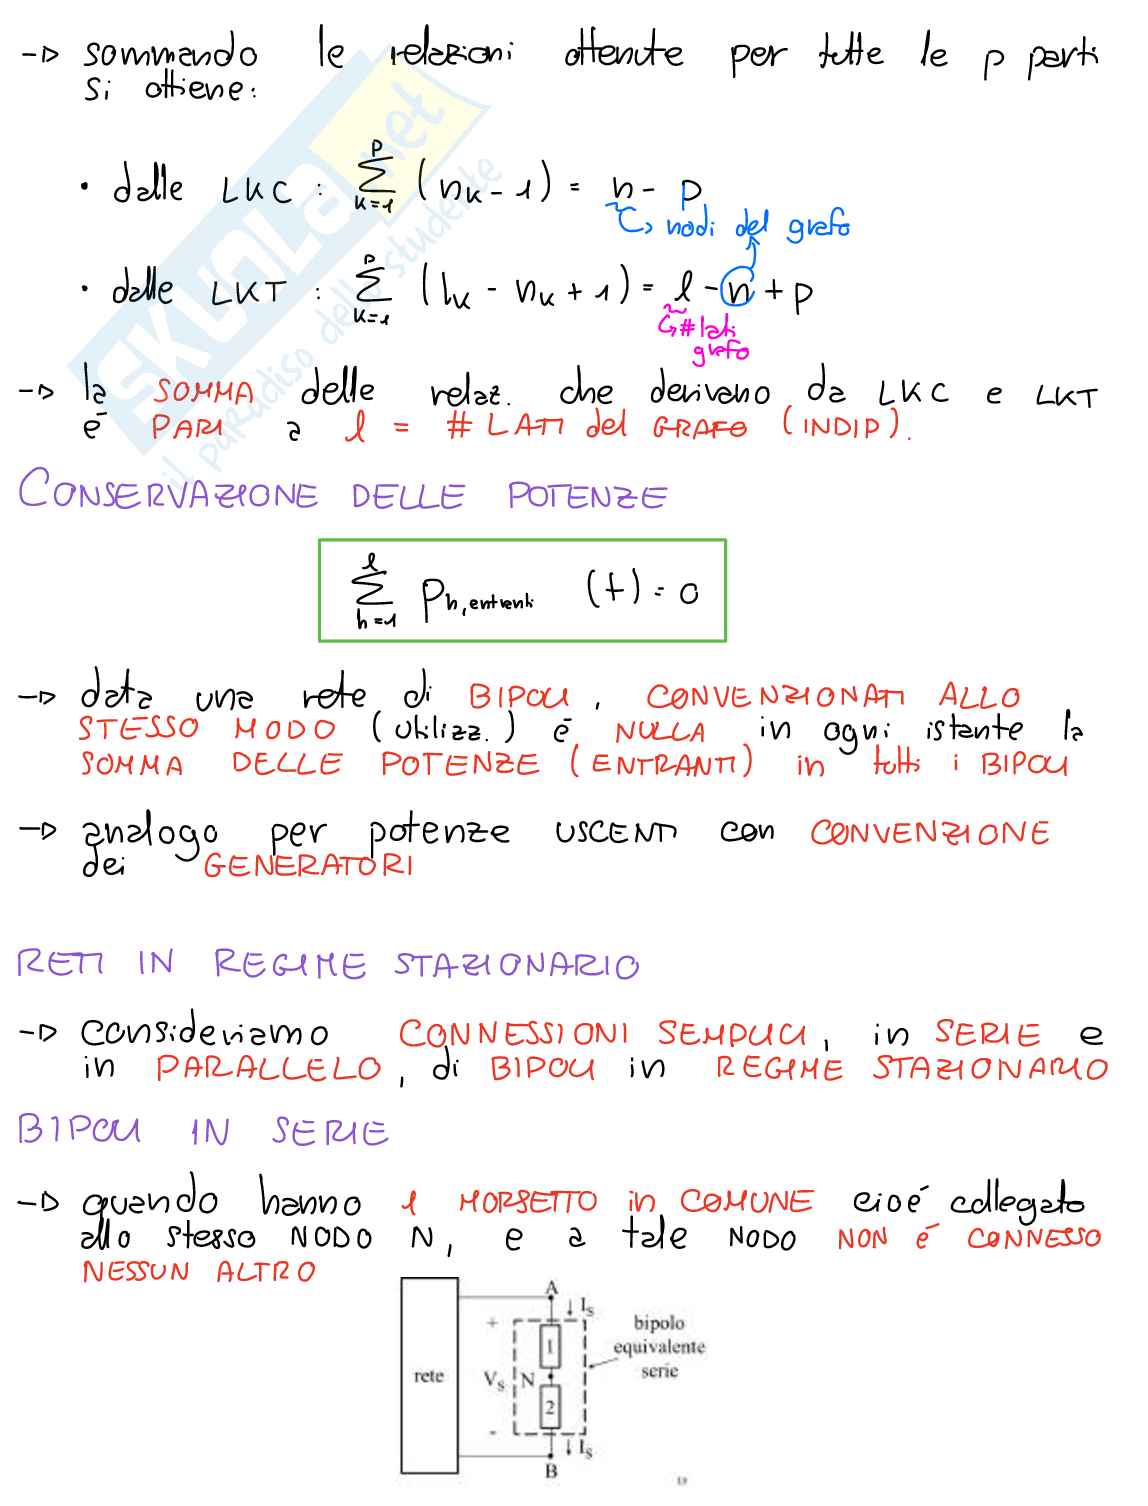 → sommando le relazioni ottenute per tutte le p parti
si ottiene:
• dalle LKC : \sum_{k=1}^{p} (n_k - 1) = n - p
↳ nodi del grafo
• dalle LKT : \sum_{k=1}^{p} (l_k - n_k + 1) = l - n + p
↳ # lati
grafo
→ la SOMMA delle relaz. che derivano da LKC e LKT
è PARI a l = # LATI del GRAFO (INDIP).
CONSERVAZIONE DELLE POTENZE
\sum_{h=1}^{l} p_{h, entranti} (t) = 0
→ data una rete di BIPOLI, CONVENZIONATI ALLO
STESSO MODO (utilizz.) è NULLA in ogni istante la
SOMMA DELLE POTENZE (ENTRANTI) in tutti i BIPOLI
→ analogo per potenze USCENTI con CONVENZIONE
dei GENERATORI
RETI IN REGIME STAZIONARIO
→ Consideriamo CONNESSIONI SEMPLICI, in SERIE e
in PARALLELO, di BIPOLI in REGIME STAZIONARIO
BIPOLI IN SERIE
→ quando hanno 1 MORSETTO in COMUNE cioè collegato
allo stesso NODO N, e a tale NODO NON è CONNESSO
NESSUN ALTRO
A
↓ I_S
+
1
bipolo
equivalente
serie
rete
V_S
N
2
-
↓ I_S
B
13
SKUOLA.net
il paradiso dello studente